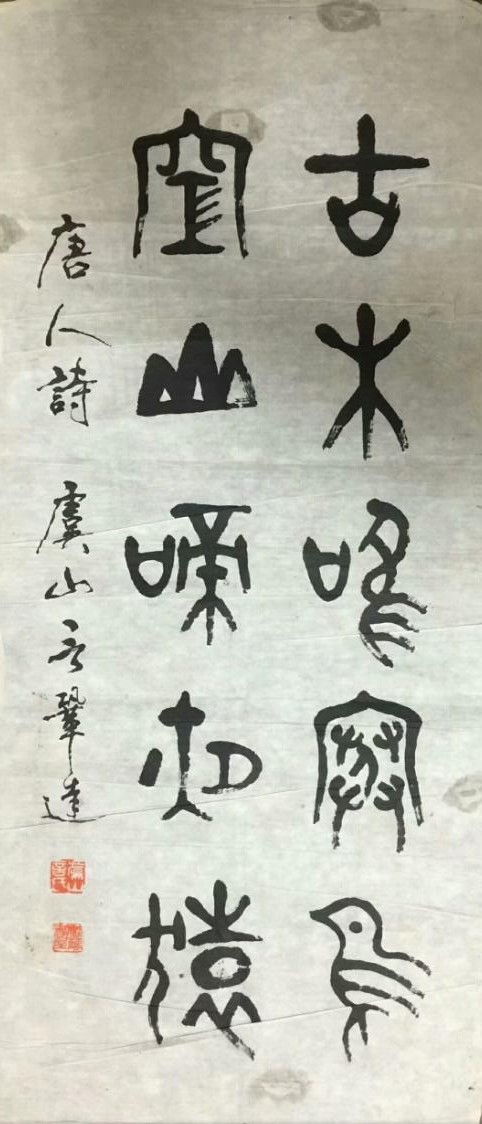 古木鳴寒鳥
空山啼夜猿
唐人詩 虞山言鞏達